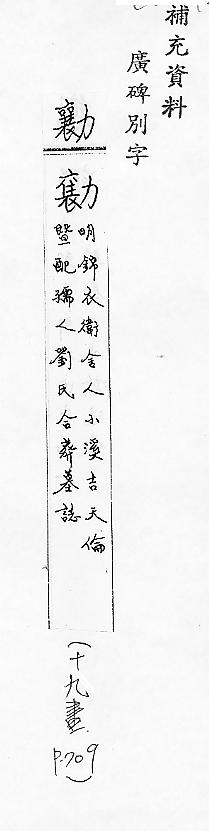 補充資料
廣碑別字
勷
明錦衣衛舍人小溪吉天倫
暨配孺人劉氏合葬墓誌
(十九畫 P.709)